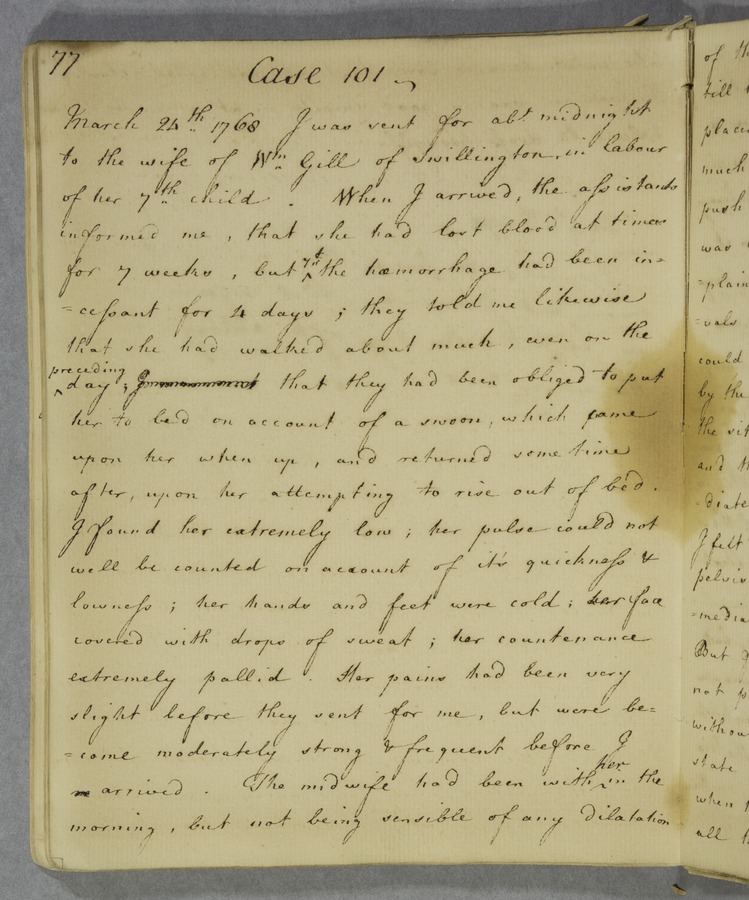 77
Case 101
March 24th 1768 I was sent for abt. midnight
to the wife of Wm. Gill of Swillington, in labour
of her 7th child . When I arrived, the assistants
informed me, that she had lost blood at times
for 7 weeks, but yt the hæmorrhage had been in=
=cessant for 4 days ; they told me likewise
that she had walked about much, even on the
preceding
day ; that they had been obliged to put
her to bed on account of a swoon, which came
upon her when up, and returned some time
after, upon her attempting to rise out of bed.
I found her extremely low ; her pulse could not
well be counted on account of it's quickness &
lowness ; her hands and feet were cold ; her face
covered with drops of sweat ; her countenance
extremely pallid . Her pains had been very
slight before they sent for me, but were be=
=come moderately strong & frequent before I
arrived . The midwife had been with her in the
morning, but not being sensible of any dilatation
of
till
place
much
push
was
=plain
=vals
could
by the
the
and
=diate
I felt
pelvis
=media
But
not
withou
state
when
all